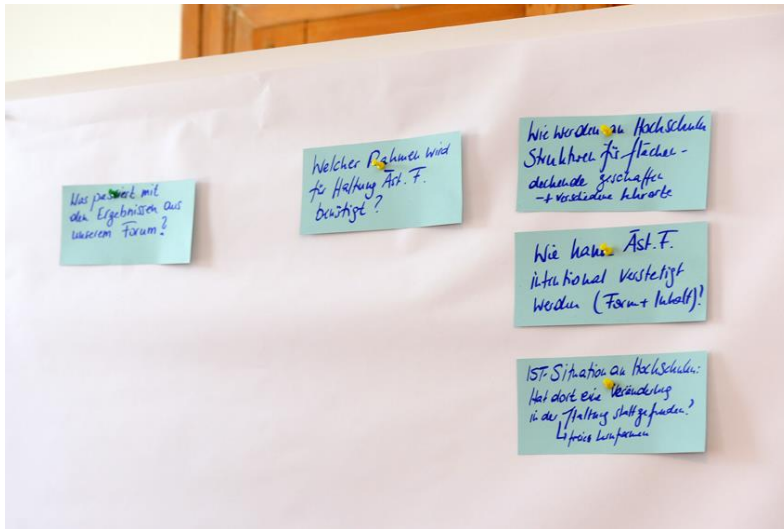 Was passiert mit
den Ergebnissen aus
unserem Forum?
Welcher Rahmen wird
für Haltung Äst. F.
benötigt?
Wie werden an Hochschulen
Strukturen für flächen-
deckende geschaffen
→ verschiedene Lehrorte
Wie kann Äst. F.
intentional verstetigt
werden (Form + Inhalt)?
IST-Situation an Hochschulen:
Hat dort eine Veränderung
in der Haltung stattgefunden?
↳ freies Lernformen